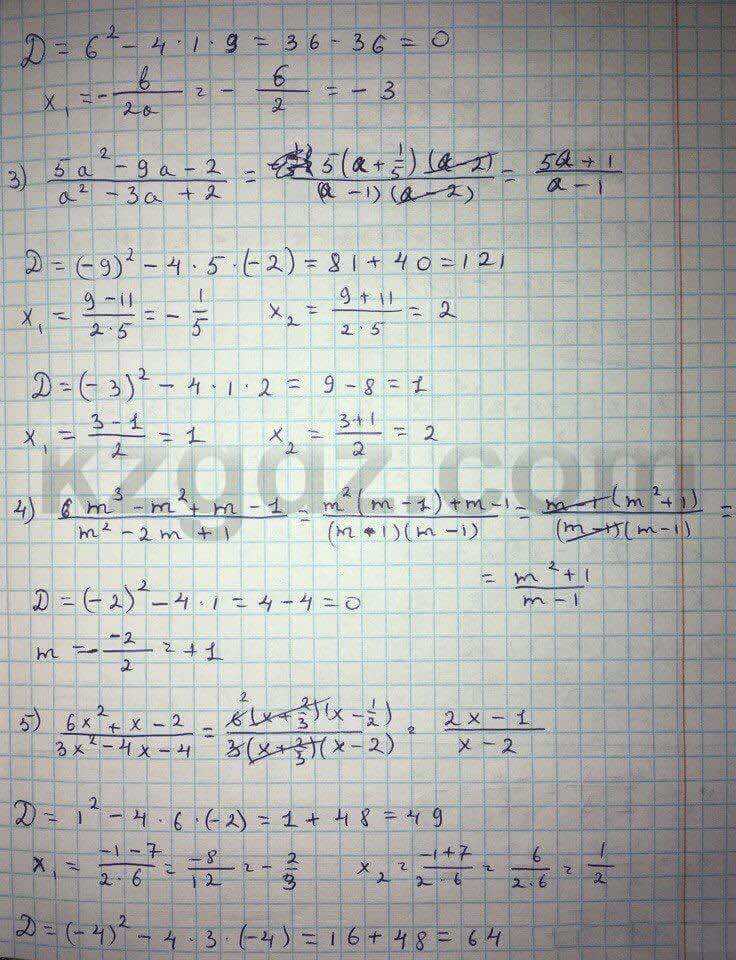 D = 6² - 4 · 1 · 9 = 36 - 36 = 0
x₁ = - b/2a = - 6/2 = - 3
3) (5a² - 9a - 2)/(a² - 3a + 2) = 5(a + 1/5)(a - 2)/(a - 1)(a - 2) = (5a + 1)/(a - 1)
D = (-9)² - 4 · 5 · (-2) = 81 + 40 = 121
x₁ = (9 - 11)/(2 · 5) = - 1/5   x₂ = (9 + 11)/(2 · 5) = 2
D = (-3)² - 4 · 1 · 2 = 9 - 8 = 1
x₁ = (3 - 1)/2 = 1   x₂ = (3 + 1)/2 = 2
kzgdz.com
4) (m³ - m² + m - 1)/(m² - 2m + 1) = (m²(m - 1) + m - 1)/((m - 1)(m - 1)) = m - 1(m² + 1)/(m - 1)(m - 1) =
= (m² + 1)/(m - 1)
D = (-2)² - 4 · 1 = 4 - 4 = 0
m = - -2/2 = +1
5) (6x² + x - 2)/(3x² - 4x - 4) = 6 2 (x + 2/3)(x - 1/2)/3(x + 2/3)(x - 2) = (2x - 1)/(x - 2)
D = 1² - 4 · 6 · (-2) = 1 + 48 = 49
x₁ = (-1 - 7)/(2 · 6) = -8/12 = - 2/3   x₂ = (-1 + 7)/(2 · 6) = 6/(2 · 6) = 1/2
D = (-4)² - 4 · 3 · (-4) = 16 + 48 = 64